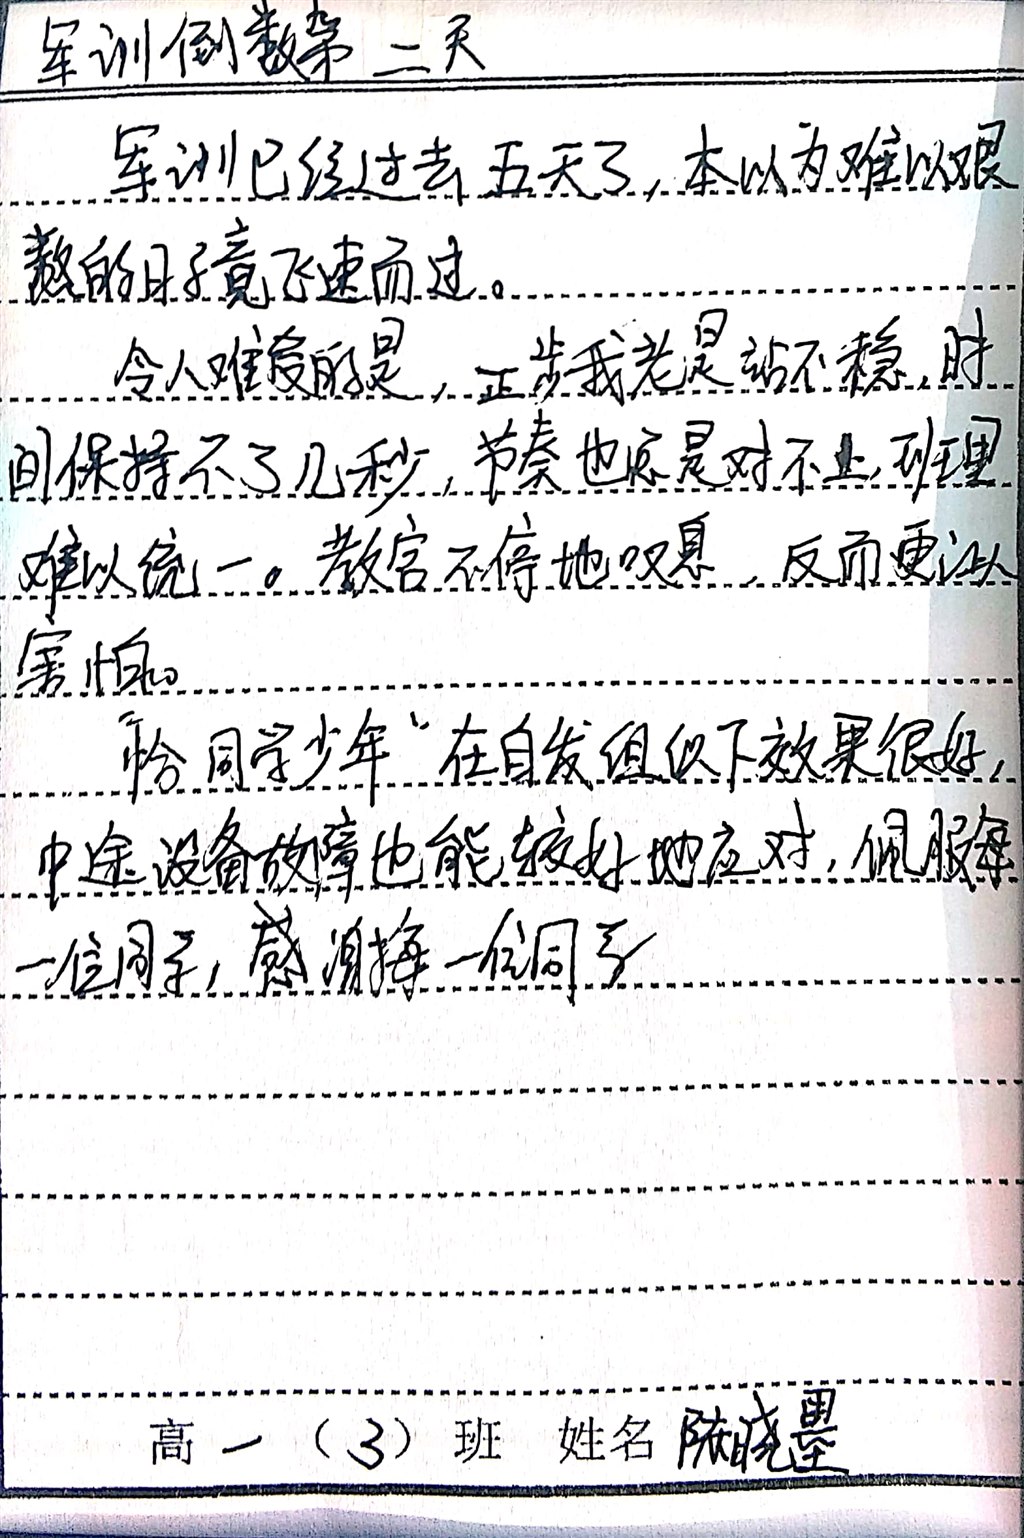 军训倒数第二天
军训已经过去五天了,本以为难以艰
熬的日子竟飞速而过。
令人难受的是,正步我老是站不稳,时
间保持不了几秒,节奏也总是对不上,班里
难以统一。教官不停地叹息,反而更让人
害怕。
“恰同学少年”在自发组织下效果很好,
中途设备故障也能较好地应对,佩服每
一位同学,感谢每一位同学
高一(3)班 姓名 陈晓墨